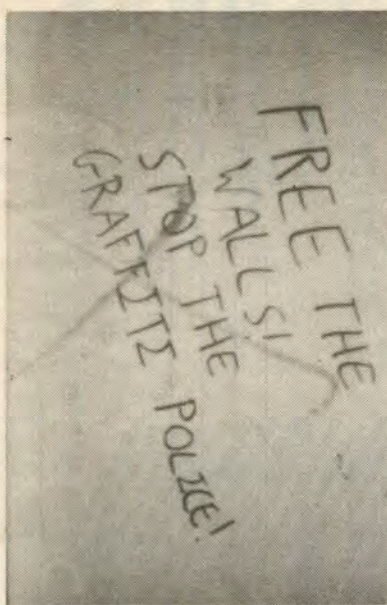 FREE THE
WALLS!
STOP THE
GRAFFITI POLICE!